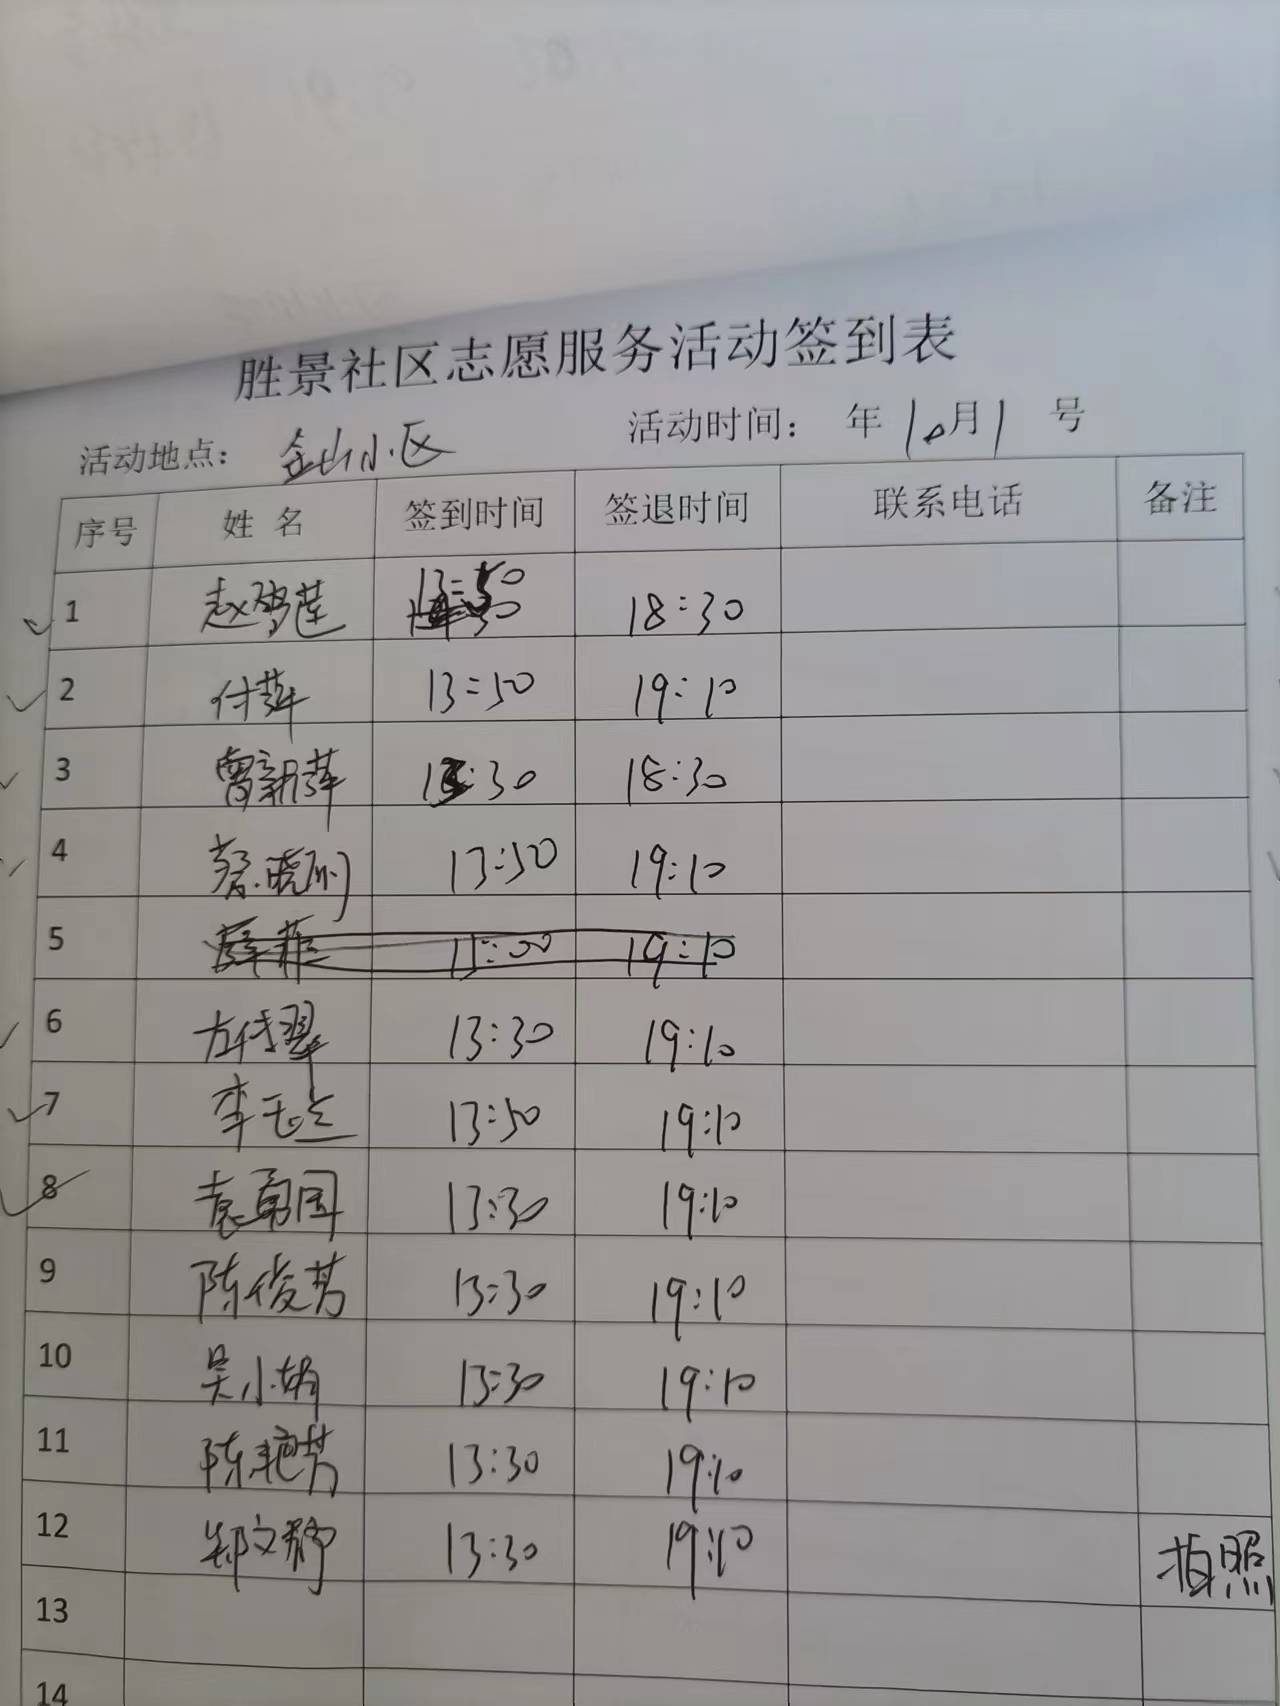 胜景社区志愿服务活动签到表
活动地点： 金山小区 活动时间： 年 10月1 号
序号 姓 名 签到时间 签退时间 联系电话 备注
1 赵 莲 13:50 18:30
2 付萍 13:50 19:10
3 曾新萍 13:30 18:30
4 蔡晓刚 13:50 19:10
5 19:10
6 方传翠 13:30 19:10
7 李 13:50 19:10
8 袁勇国 13:30 19:10
9 陈俊芳 13:30 19:10
10 吴小娟 13:30 19:10
11 陈艳芳 13:30 19:10
12 郑文静 13:30 19:10 拍照
13
14